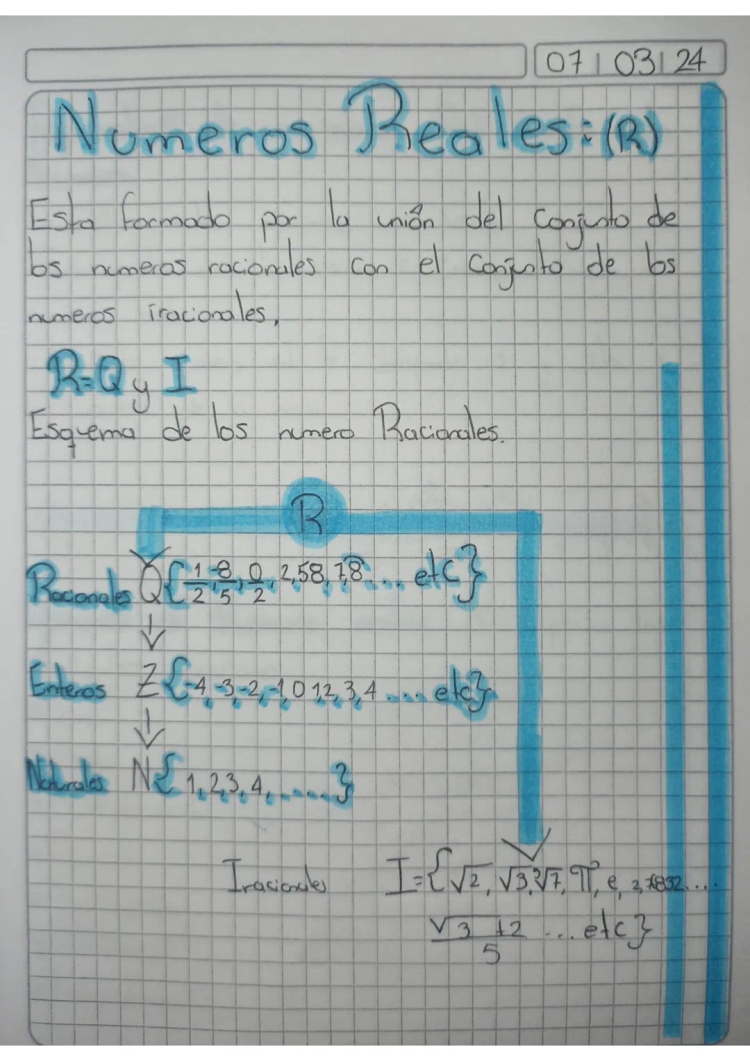 07 | 03 | 24
Numeros Reales: (R)
Esta formado por la unión del conjunto de
los numeros racionales con el conjunto de los
numeros iracionales,
R=Q y I
Esquema de los numero Racionales.
R
Racionales Q{1/2, -8/5, 0/2, 2,58, 7,8... etc}
Enteros Z{-4,-3,-2,-1,0 1 2, 3, 4 .... etc}
Naturales N{1,2,3,4,......}
Iracionales I={√2, √3, ∛7, π, e,
√3 +2/5 ... etc}